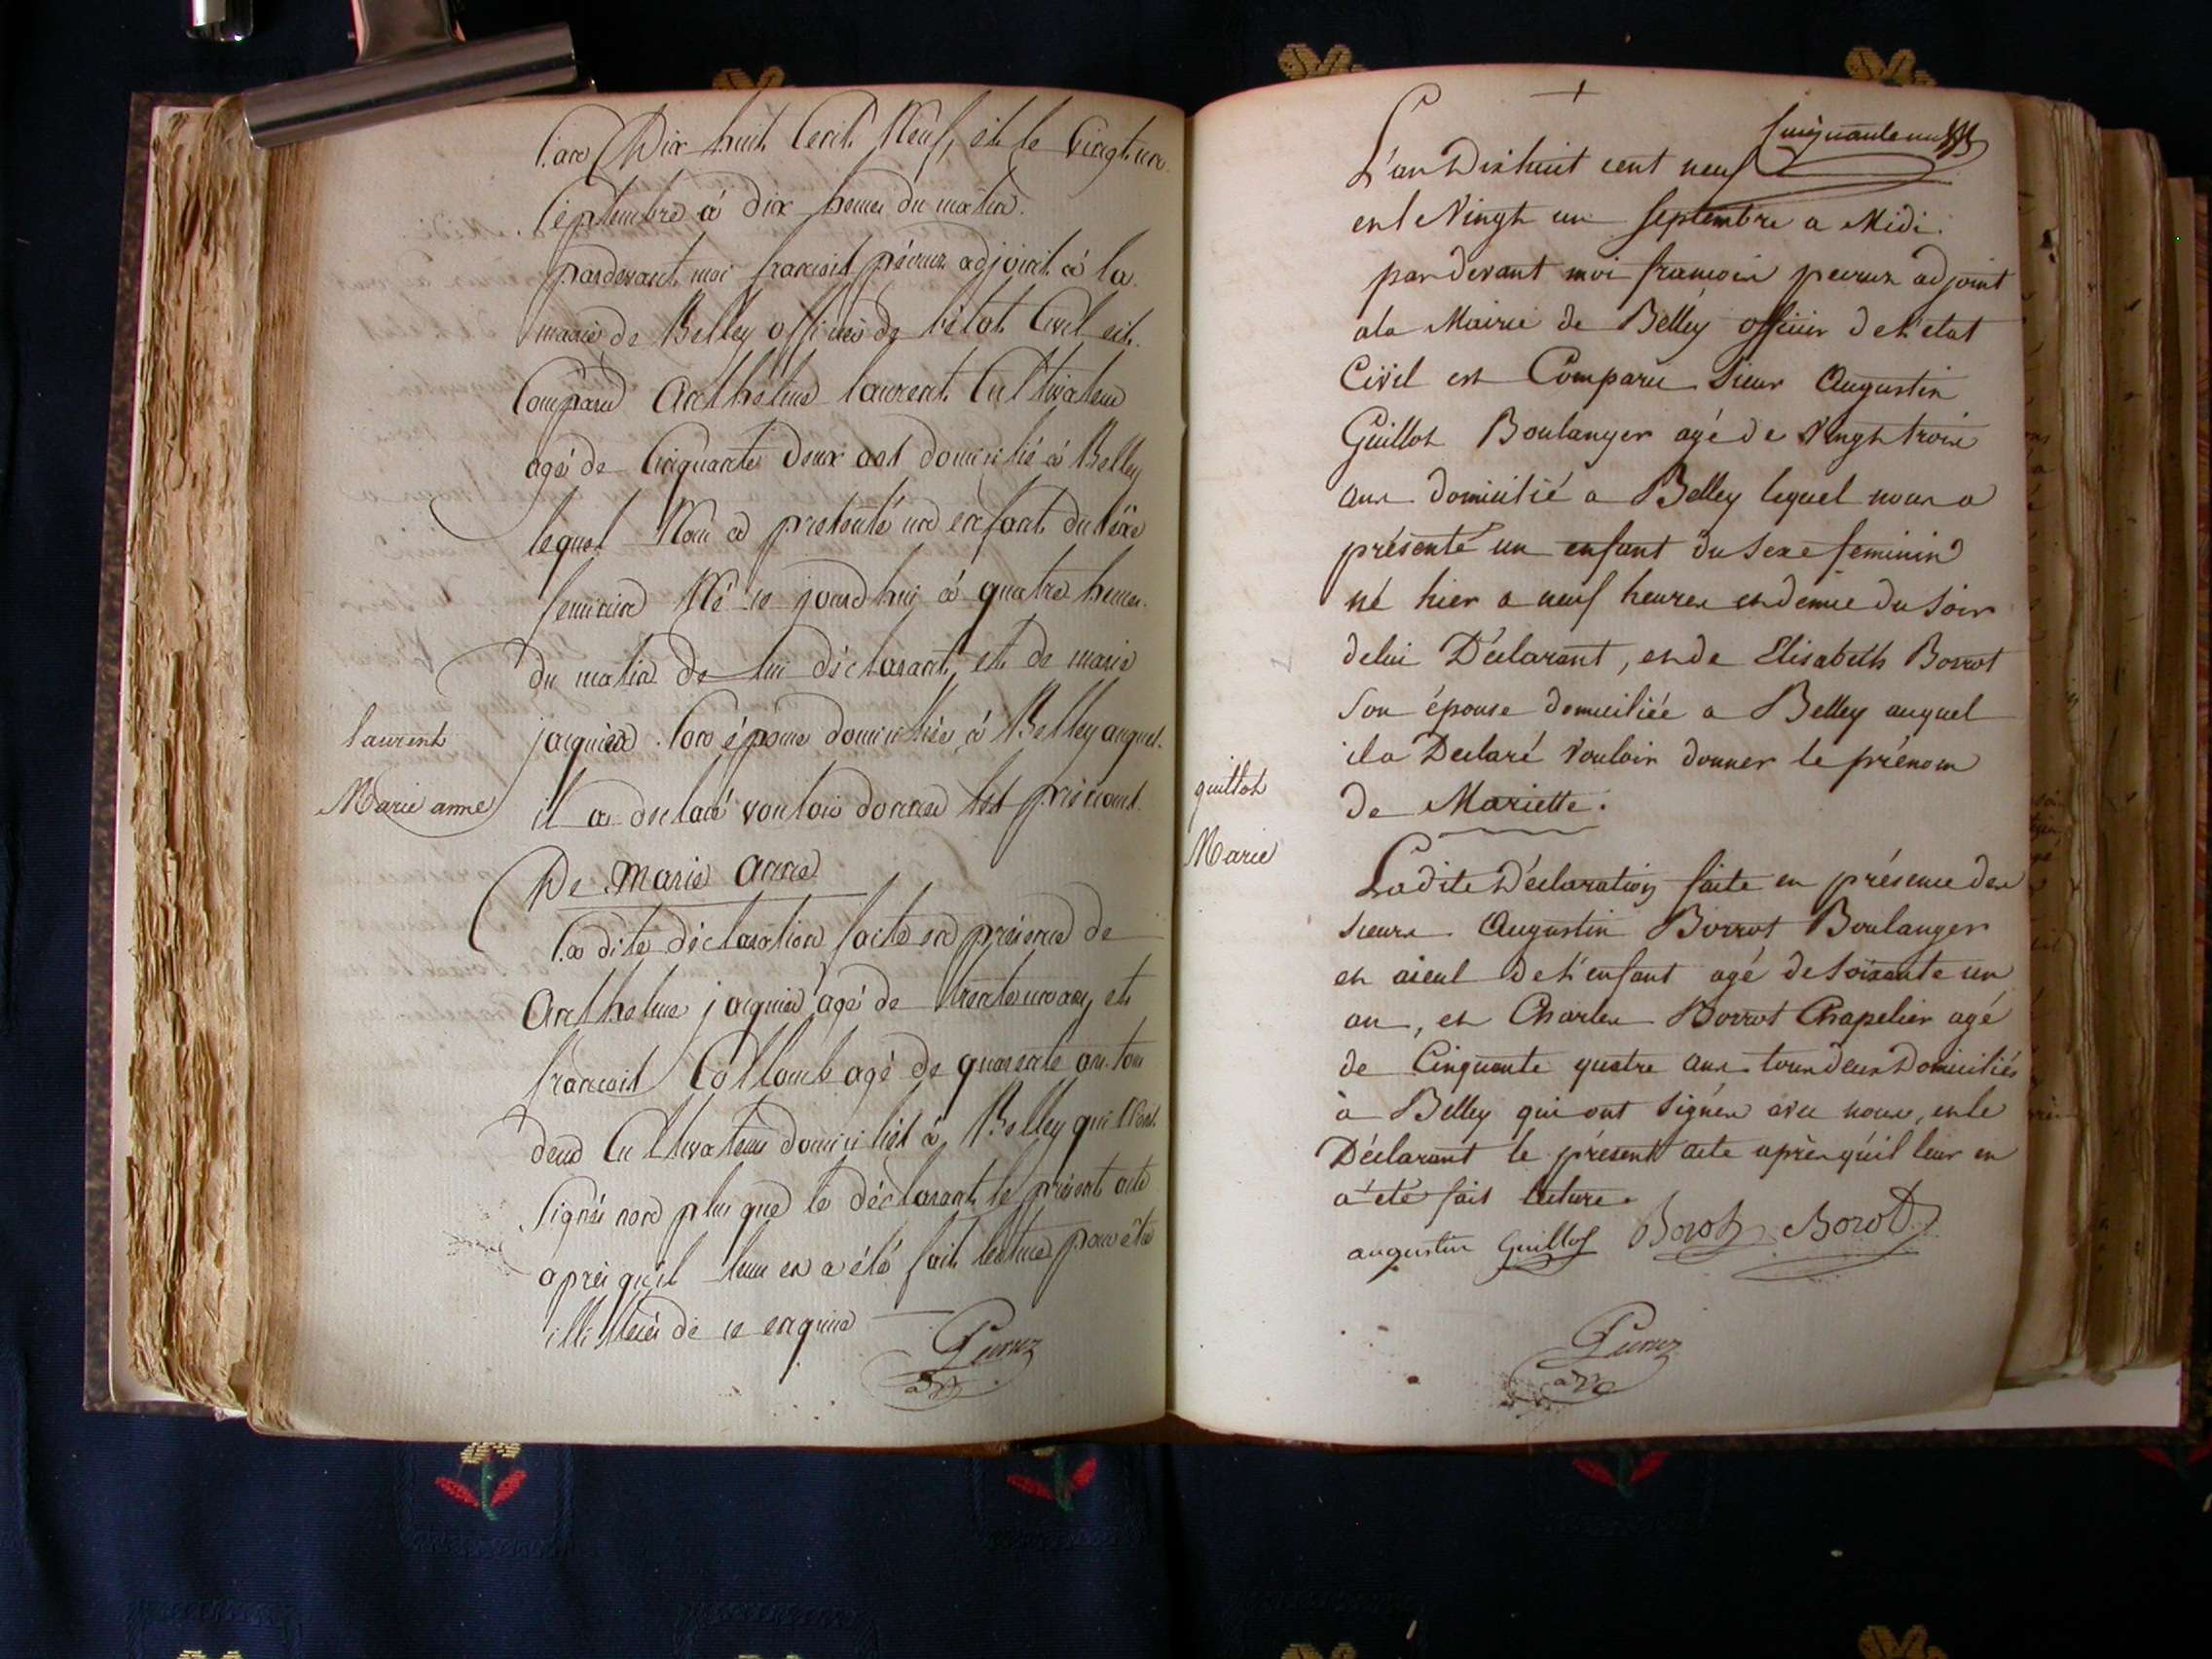 L'an Dix huit Cent Neuf, et le Vingt un
Septembre à dix heures du matin.
pardevant moi francois pévruz adjoint à la
mairie de Belley officier de l'état Civil est
Comparu Anthelme laurent Cultivateur
agé de Cinquante Deux ans domicilié à Belley
lequel Nous a presenté un enfant du séxe
feminin Né ce jourdhui à quatre heures
du matin de lui déclarant et de marie
jacquier son épouse domiciliée à Belley auquel
il a declaré vouloir donner les prénoms
De Marie Anne
La dite déclaration faite en présence de
Anthelme jacquier agé de trente un ans, et
francois Collomb agé de quarente ans tous
deux Cultivateurs domiciliés à Belley qui n'ont
Signés non plus que le déclarant le présent acte
après qu'il leur en a été fait lecture pour être
illitterés de ce enquis
laurent
Marie anne
L'an Dix huit cent neuf
et le Vingt un Septembre a Midi.
par devant moi francois pevruz adjoint
a la Mairie de Belley officier de l'état
Civil est Comparu Sieur Augustin
Guillot Boulanger agé de Vingt trois
ans domicilié a Belley lequel nous a
présenté un enfant du Sexe feminin
né hier a neuf heures et demie du Soir
de lui Déclarant, et de Elisabeth Borrot
Son épouse domiciliée a Belley auquel
il a Declaré Vouloir donner le prénom
de Mariette.
La dite Déclaration faite en présence des
Sieurs Augustin Borrot Boulanger
et aieul de l'enfant agé de soixante un
an, et Charles Borrot Chapelier agé
de Cinquante quatre ans tous deux Domiciliés
à Belley qui ont signés avec nous, et le
Déclarant le présent acte après qu'il leur en
a été fait lecture.
augustin Guillot Borot Borot
guillot
Marie